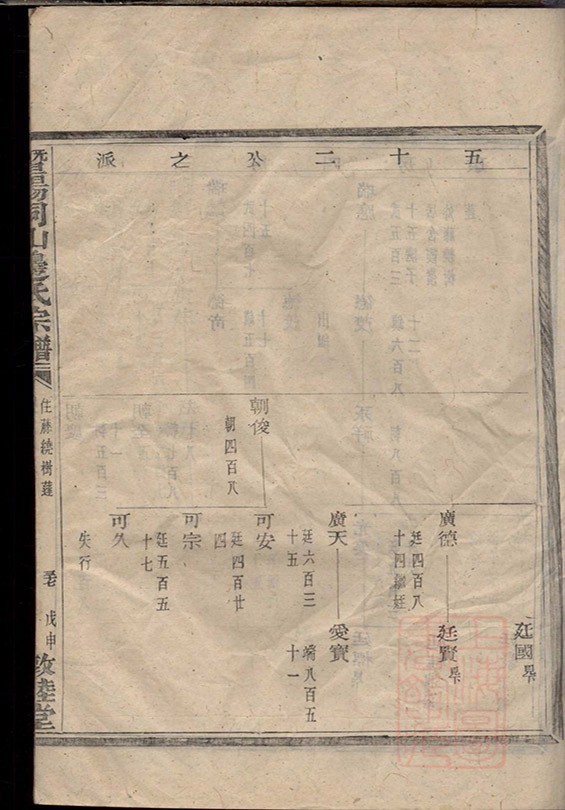 五十二公之派
廷國
廣德
廷賢
廷四百八
十四繼娃
廣天
愛寶
廷六百三
十五
端八百五
十一
朝俊
朝四百八
可安
廷四百廿
四
可宗
廷五百五
十七
可久
失行
暨陽同山邊氏宗譜
住藤繞樹蓬
戊申
敦睦堂